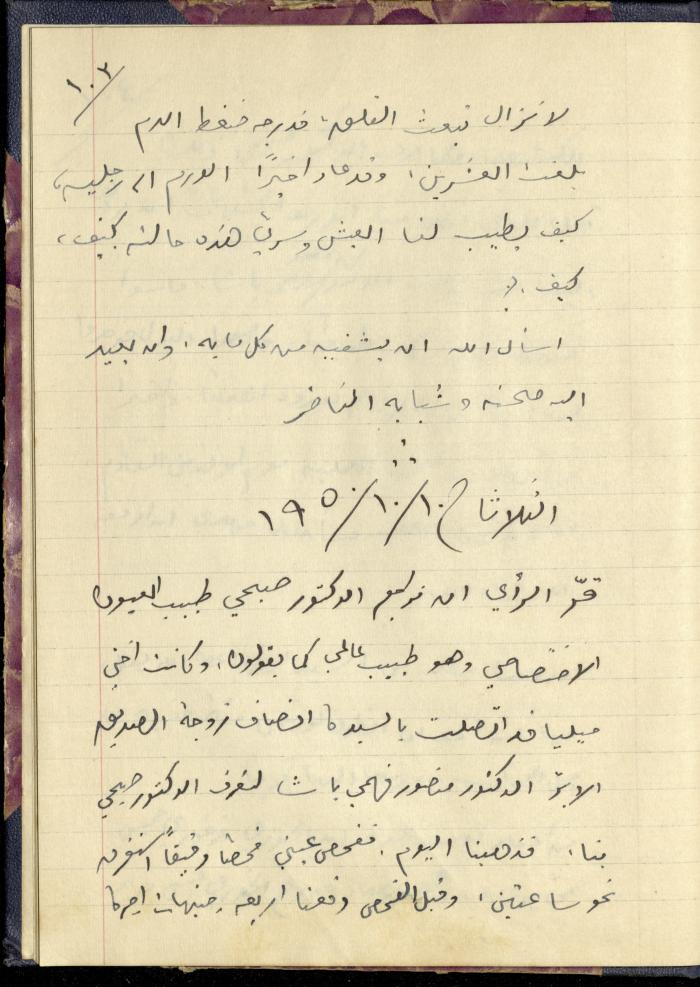 ١٠٣
لا تزال تبعث القلق، فدرجة ضغط الدم
بلغت العشرين، وقد عاد اخيرًا الورم الى رجليه،
كيف يطيب لنا العيش وسري هذه حالته، كيف،
كيف؟
اسأل الله ان يشفيه من كل ما به، وان يعيد
اليه صحته وشبابه الناضر
الثلاثا ١٠/١٠/١٩٥٠
قرّ الرأي ان نراجع الدكتور صبحي طبيب العيون
الاختصاصي وهو طبيب عالمي كما يقولون، وكانت اختي
ميليا قد اتصلت بالسيدة انصاف زوجة الصديق
الابرّ الدكتور منصور فهمي باشا لتعرف الدكتور صبحي
بنا، فذهبنا اليوم، ففحص عيني فحصًا دقيقًا استغرق
نحو ساعتين، وقبل الفحص دفعنا اربعة جنيهات اجرة